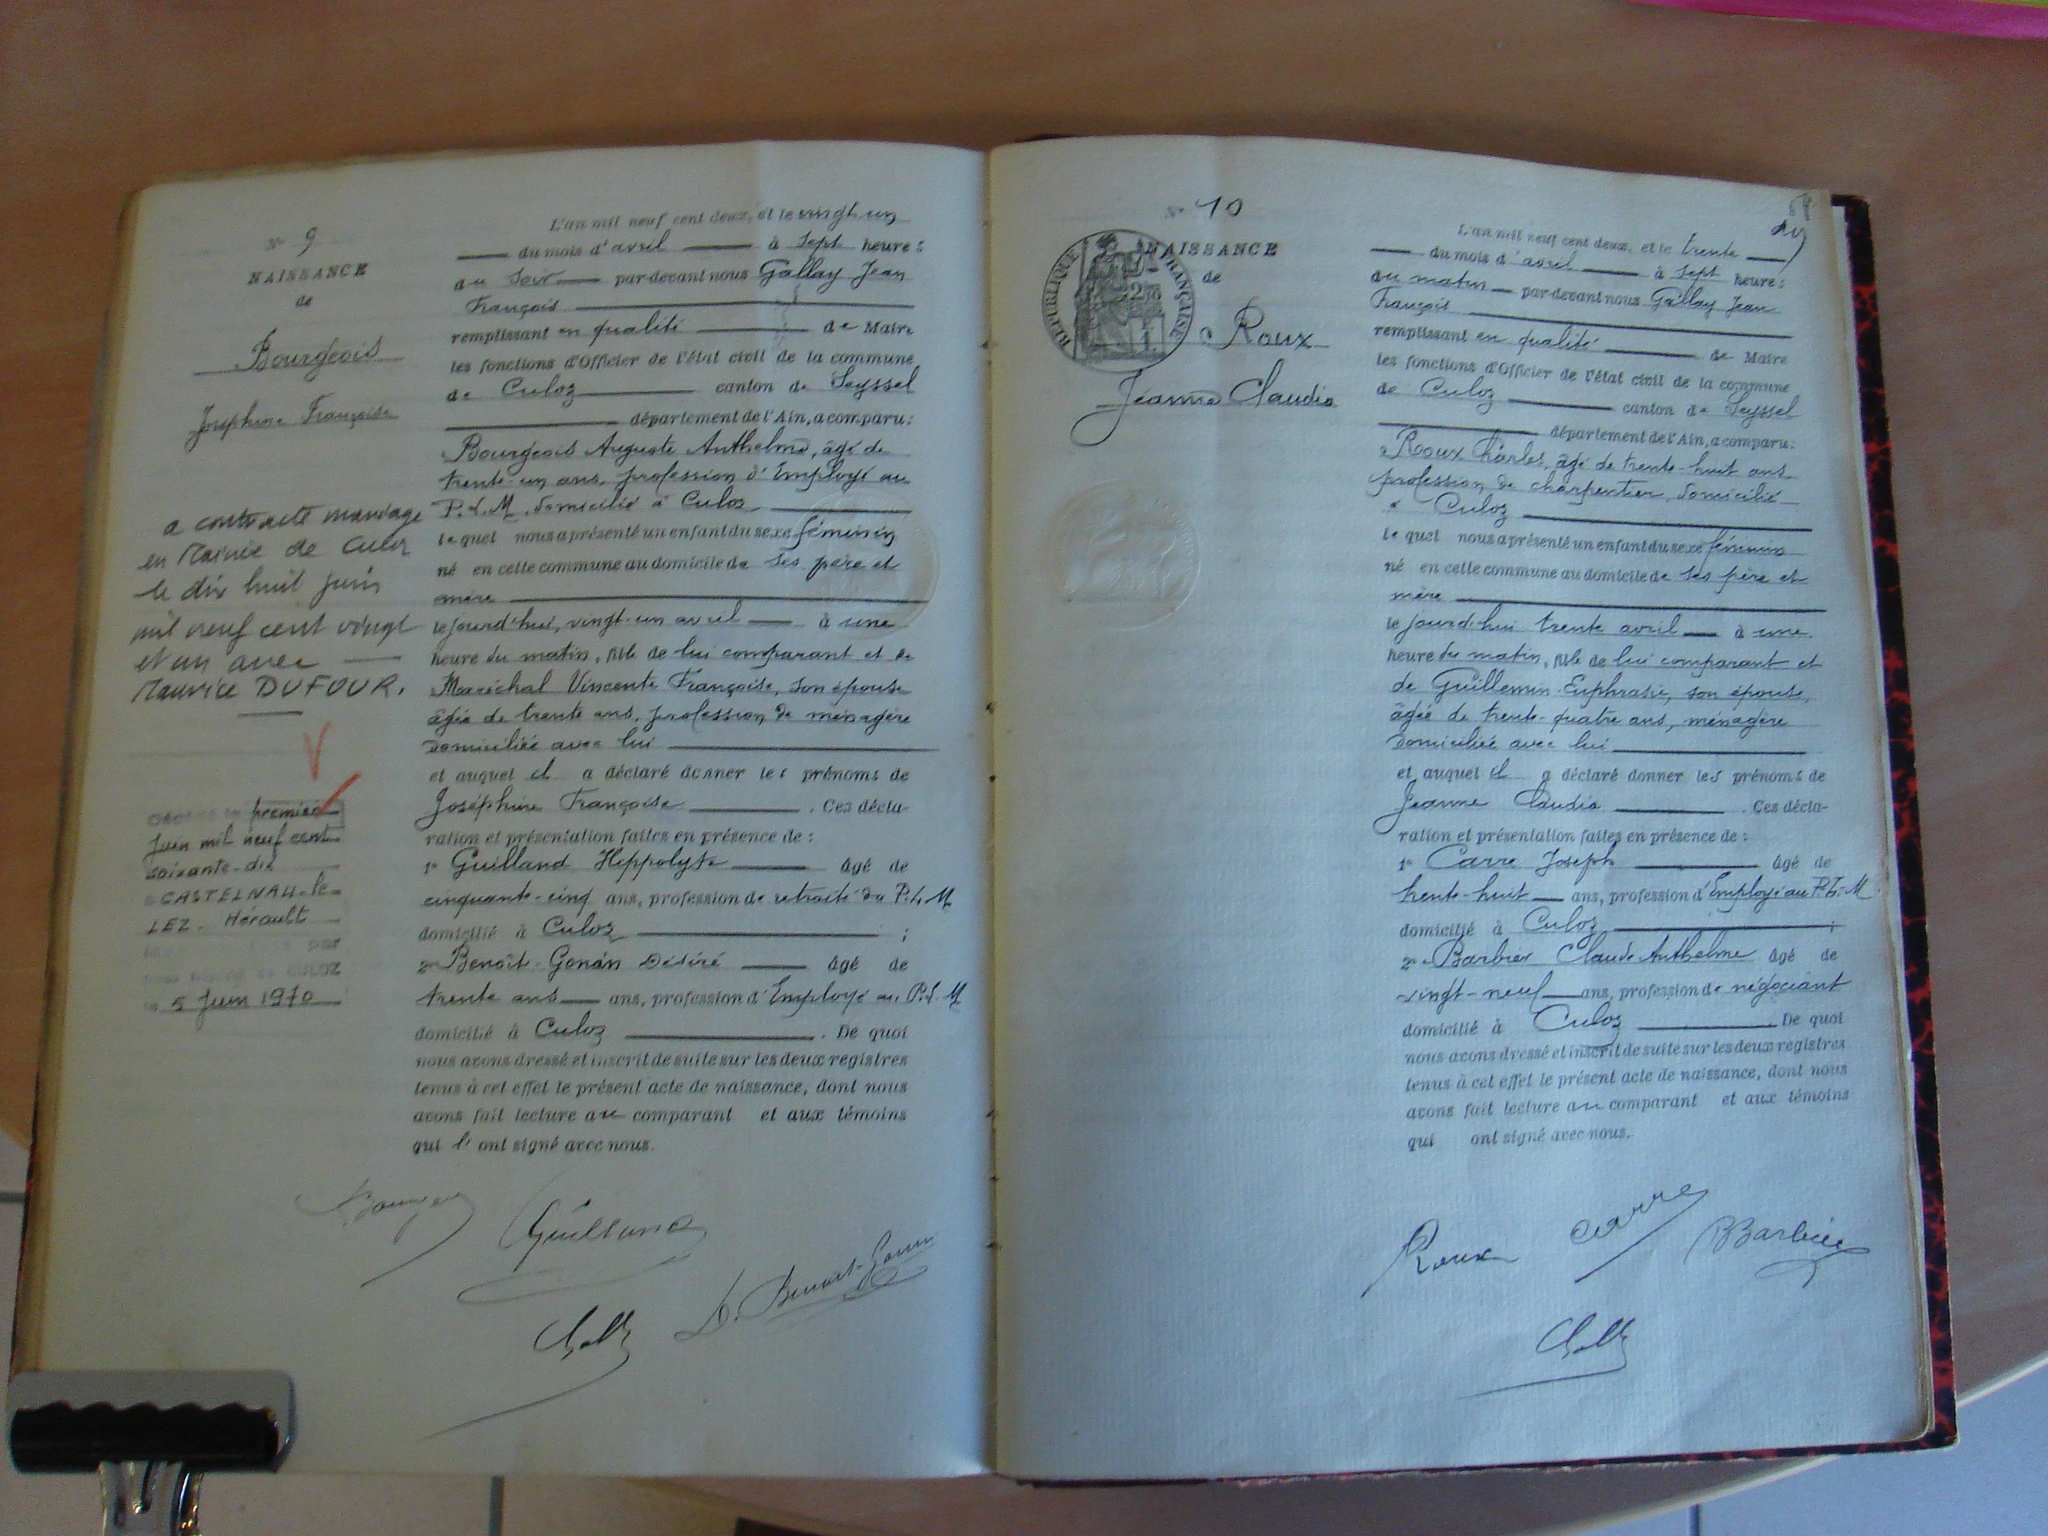 N° 9
NAISSANCE
de
Bourgeois
Joséphine Françoise
a contracté mariage
en Mairie de Culoz
le dix huit juin
mil neuf cent vingt
et un avec
Maurice DUFOUR.
premier
Juin mil neuf cent
soixante-dix
CASTELNAU-le-
LEZ - Hérault
par
CULOZ
le 5 Juin 1970
L'an mil neuf cent deux, et le vingt un
du mois d'avril à sept heures
du soir par-devant nous Gallay Jean
François
remplissant en qualité de Maire
les fonctions d'Officier de l'état civil de la commune
de Culoz canton de Seyssel
département de l'Ain, a comparu:
Bourgeois Auguste Anthelme, âgé de
trente-un ans, profession d'Employé au
P.L.M. domicilié à Culoz
lequel nous a présenté un enfant du sexe féminin
né en cette commune au domicile de ses père et
mère
le jourd'hui, vingt-un avril à une
heure du matin, fille de lui comparant et de
Maréchal Vincente Françoise, son épouse
âgée de trente ans, profession de ménagère
domiciliée avec lui
et auquel il a déclaré donner les prénoms de
Joséphine Françoise. Ces décla-
ration et présentation faites en présence de:
1° Guilland Hippolyte âgé de
cinquante-cinq ans, profession de retraité du P.L.M
domicilié à Culoz;
2° Benoît-Gonin Désiré âgé de
trente ans ans, profession d'Employé au P.L.M
domicilié à Culoz. De quoi
nous avons dressé et inscrit de suite sur les deux registres
tenus à cet effet le présent acte de naissance, dont nous
avons fait lecture au comparant et aux témoins
qui l'ont signé avec nous.
Guilland
D. Benoit-Gonin
N° 10
NAISSANCE
de
RÉPUBLIQUE FRANÇAISE
Roux
Jeanne Claudia
L'an mil neuf cent deux, et le trente
du mois d'avril à sept heures
du matin par-devant nous Gallay Jean
François
remplissant en qualité de Maire
les fonctions d'Officier de l'état civil de la commune
de Culoz canton de Seyssel
département de l'Ain, a comparu:
Roux Charles, âgé de trente-huit ans
profession de charpentier, domicilié
à Culoz
lequel nous a présenté un enfant du sexe féminin
né en cette commune au domicile de ses père et
mère
le jourd'hui trente avril à une
heure du matin, fille de lui comparant et
de Guillemin Euphrasie, son épouse,
âgée de trente-quatre ans, ménagère
domiciliée avec lui
et auquel il a déclaré donner les prénoms de
Jeanne Claudia. Ces décla-
ration et présentation faites en présence de:
1° Carre Joseph âgé de
trente-huit ans, profession d'Employé au P.L.M.
domicilié à Culoz;
2° Barbier Claude Anthelme âgé de
vingt-neuf ans, profession de négociant
domicilié à Culoz. De quoi
nous avons dressé et inscrit de suite sur les deux registres
tenus à cet effet le présent acte de naissance, dont nous
avons fait lecture au comparant et aux témoins
qui ont signé avec nous.
Roux
Carre
Barbier